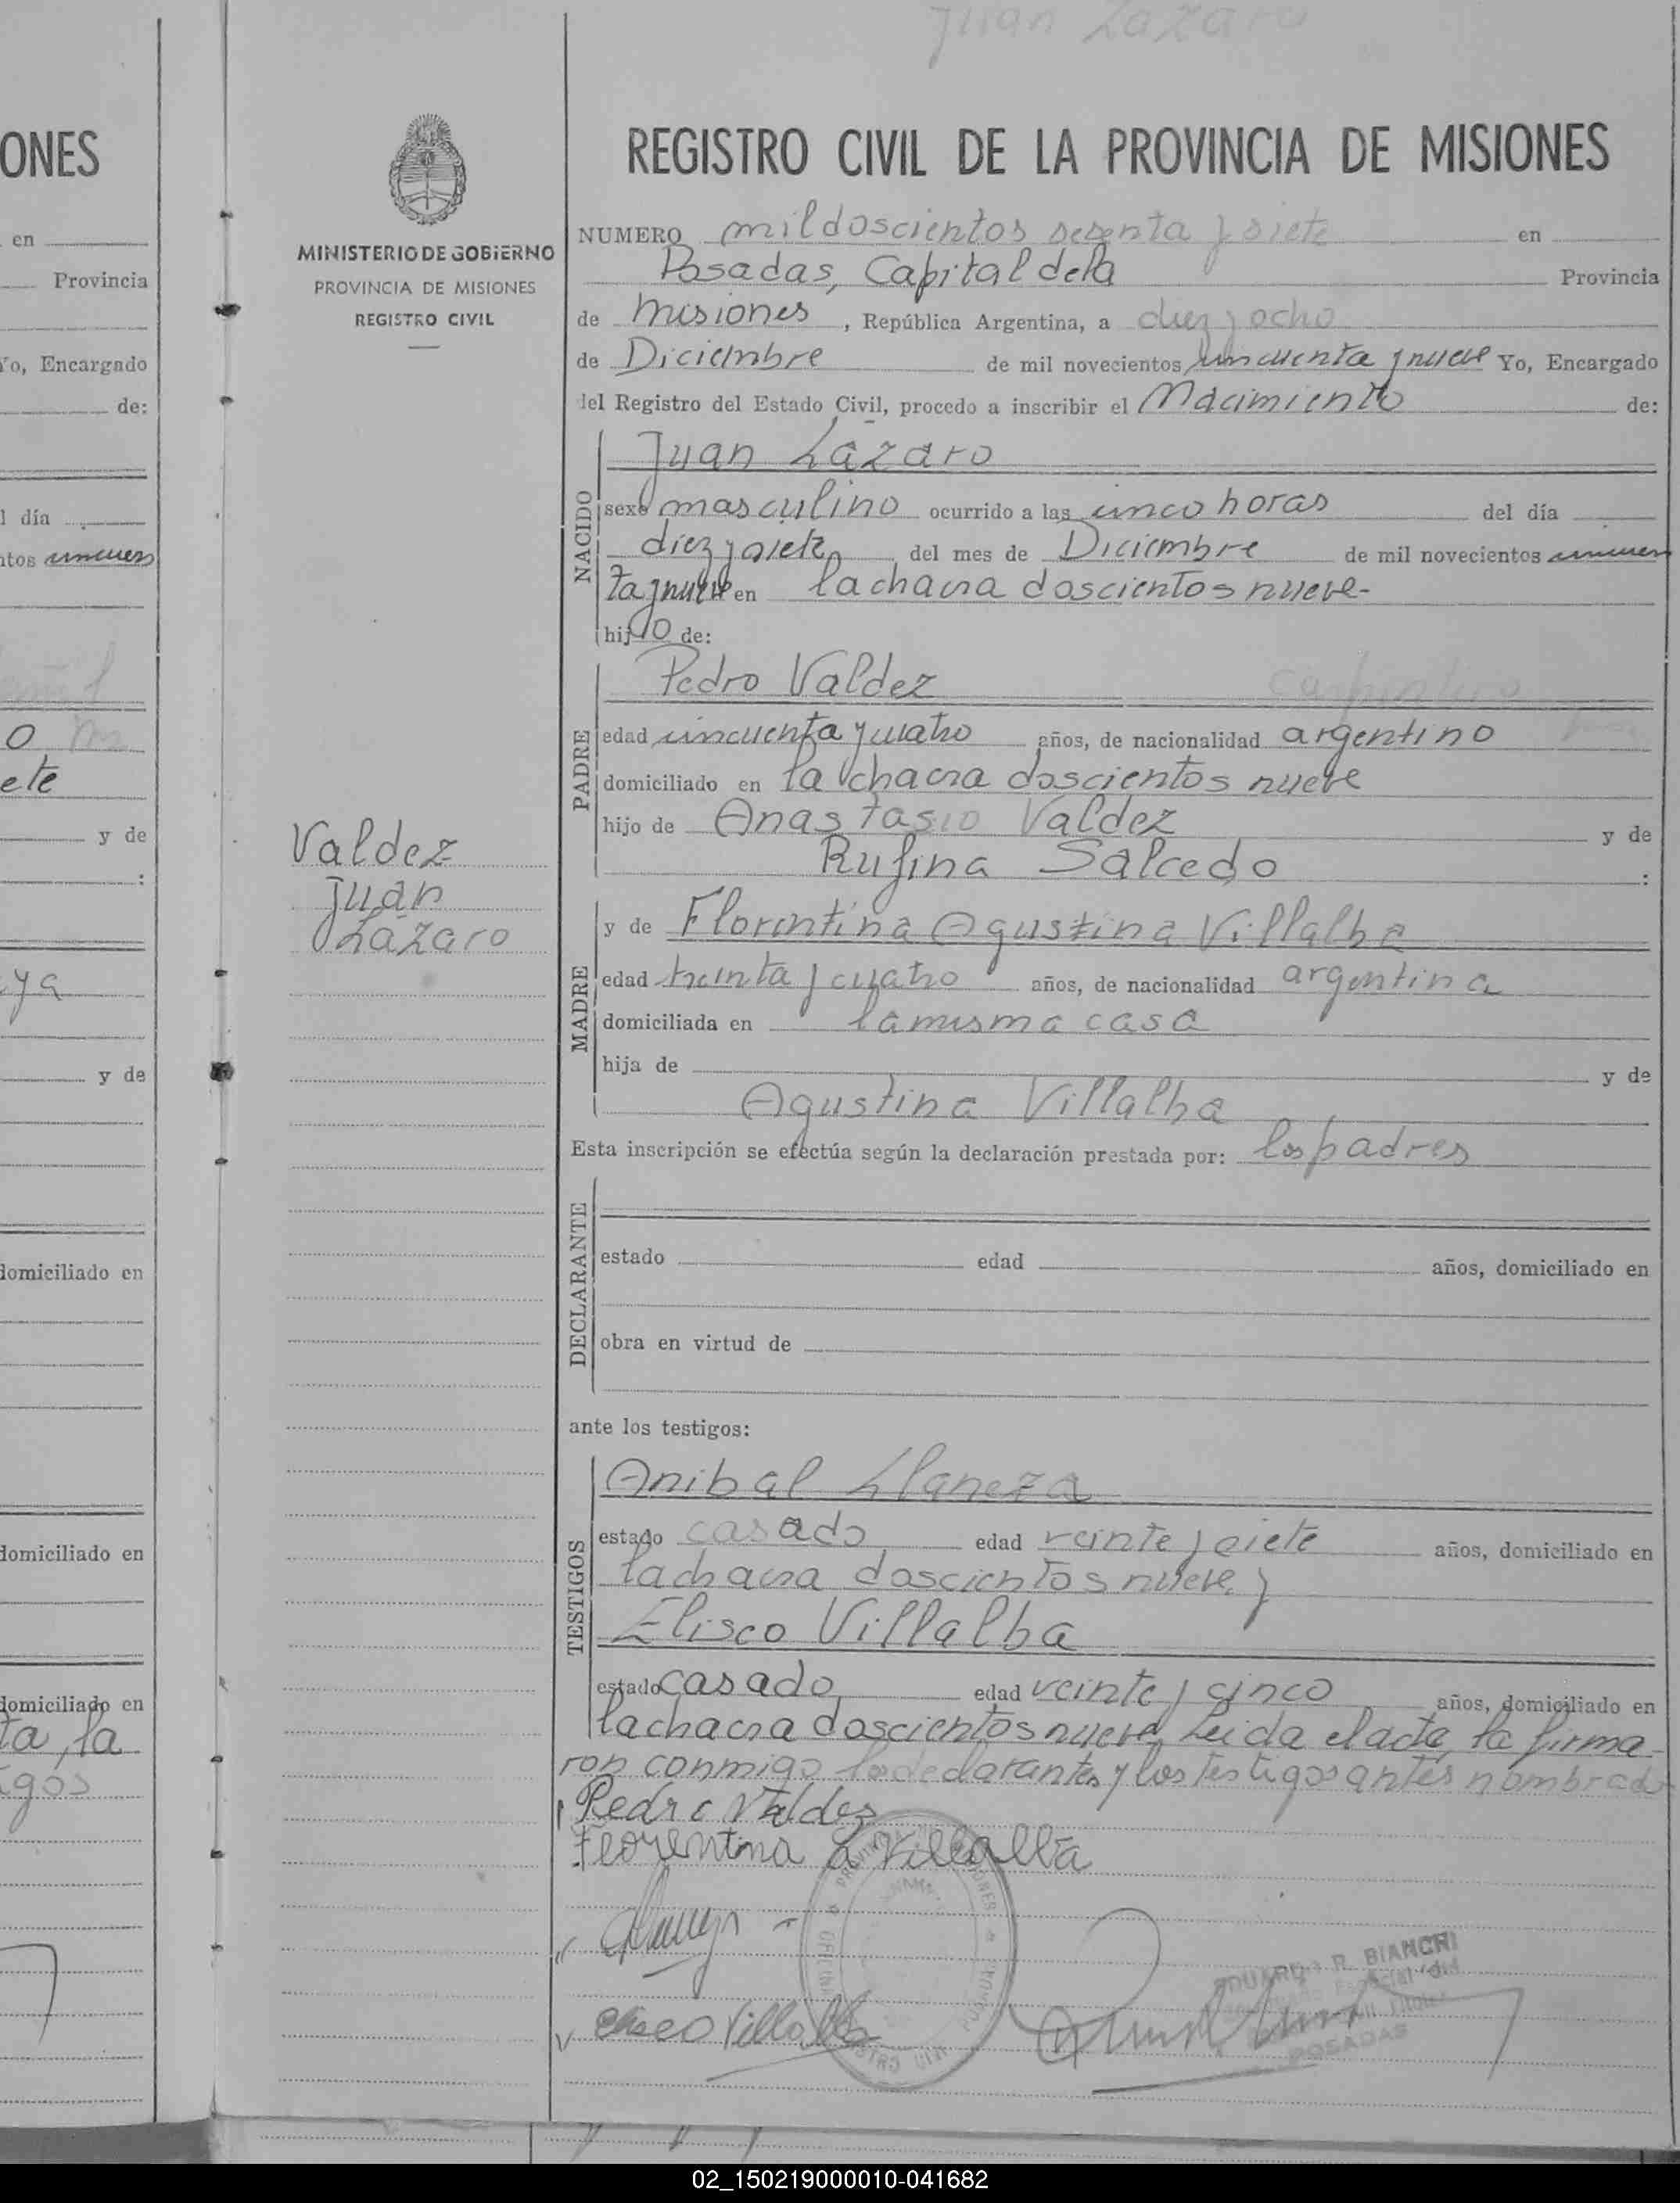 Juan Lazaro
ONES
en
Provincia
Yo, Encargado
de:
l día
ntos cincuen
o
ete
y de
:
ya
y de
domiciliado en
domiciliado en
domiciliado en
ta, la
igos
MINISTERIO DE GOBIERNO
PROVINCIA DE MISIONES
REGISTRO CIVIL
Valdez
Juan
Lázaro
REGISTRO CIVIL DE LA PROVINCIA DE MISIONES
NUMERO mil doscientos sesenta y siete en
Posadas, Capital de la Provincia
de Misiones, República Argentina, a diez y ocho
de Diciembre de mil novecientos cincuenta y nueve Yo, Encargado
del Registro del Estado Civil, procedo a inscribir el Nacimiento de:
NACIDO
Juan Lázaro
sexo masculino ocurrido a las cinco horas del día
diez y siete del mes de Diciembre de mil novecientos cincuen
ta y nueve en la chacra doscientos nueve-
hijo de:
PADRE
Pedro Valdez carpintero
edad cincuenta y cuatro años, de nacionalidad argentino
domiciliado en la chacra doscientos nueve
hijo de Anastasio Valdez y de
Rufina Salcedo :
MADRE
y de Florentina Agustina Villalba
edad treinta y cuatro años, de nacionalidad argentina
domiciliada en la misma casa
hija de y de
Agustina Villalba
Esta inscripción se efectúa según la declaración prestada por: los padres
DECLARANTE
estado edad años, domiciliado en
obra en virtud de
ante los testigos:
TESTIGOS
Anibal Llaneza
estado casado edad veinte y siete años, domiciliado en
la chacra doscientos nueve, y
Eliseo Villalba
estado casado edad veinte y cinco años, domiciliado en
la chacra doscientos nueve, Leida el acta, la firma
ron conmigo los declarantes y los testigos antes nombrad
Pedro Valdez
Florentina A Villalba
Eliseo Villalba
EDUARDO R. BIANCHI
POSADAS
02_150219000010-041682